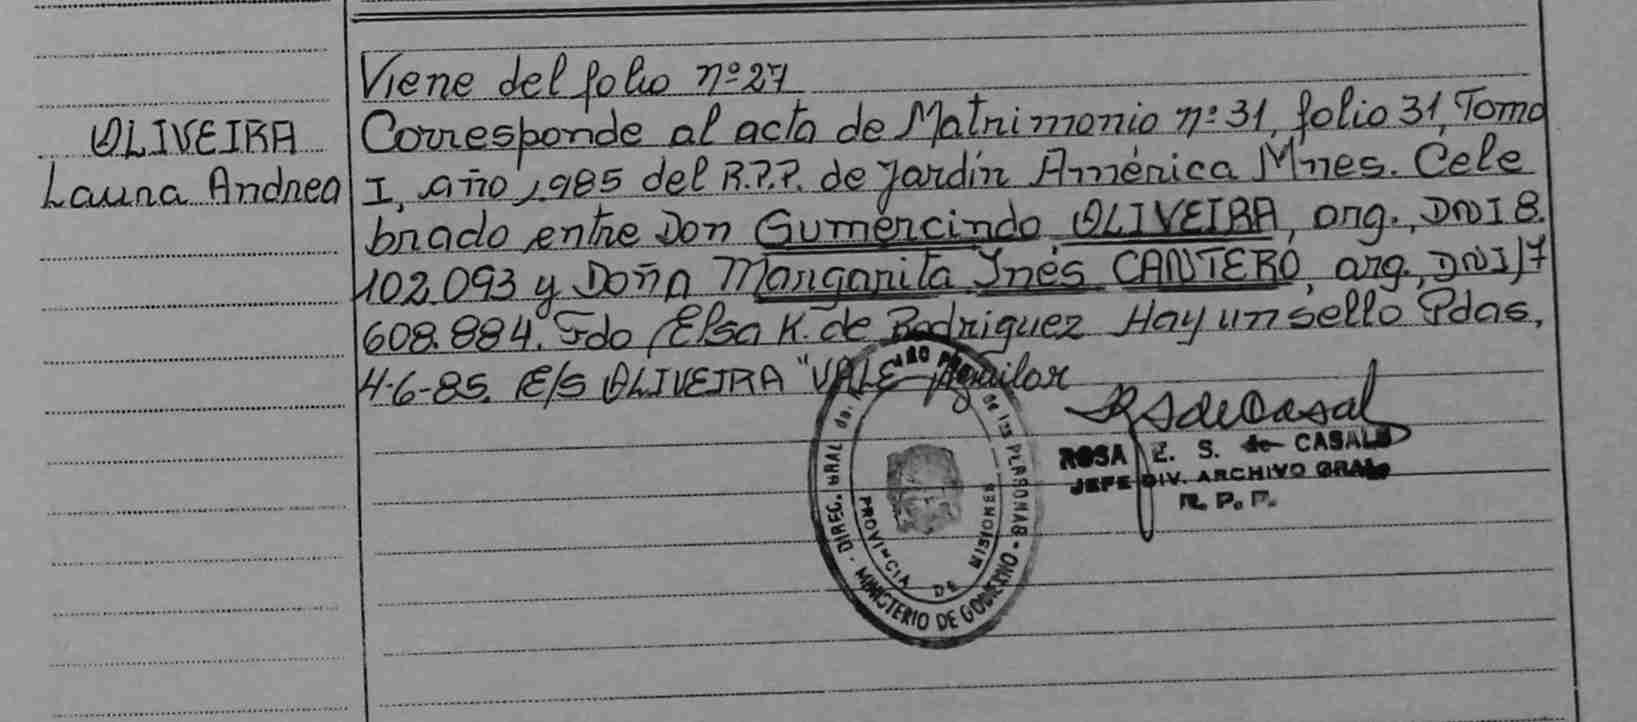 OLIVEIRA
Laura Andrea
Viene del folio nº 27
Corresponde al acta de Matrimonio nº 31, folio 31, Tomo
I, año 1985 del R.P.P. de Jardín América Mnes. Cele
brado entre Don Gumercindo OLIVEIRA, arg., DNI 8.
102.093 y Doña Margarita Inés CANTERO, arg., DNI 17
608.884. Fdo, Elsa K. de Rodriguez Hay un sello Pdas,
4-6-85. E/S OLIVEIRA "VALE" Aguilar
RSdeCasal
ROSA E. S. de CASALS
JEFE DIV. ARCHIVO GRAL.
R. P. P.
DIREC. GRAL de las PERSONAS - MINISTERIO DE GOBIERNO -
PROVINCIA DE MISIONES